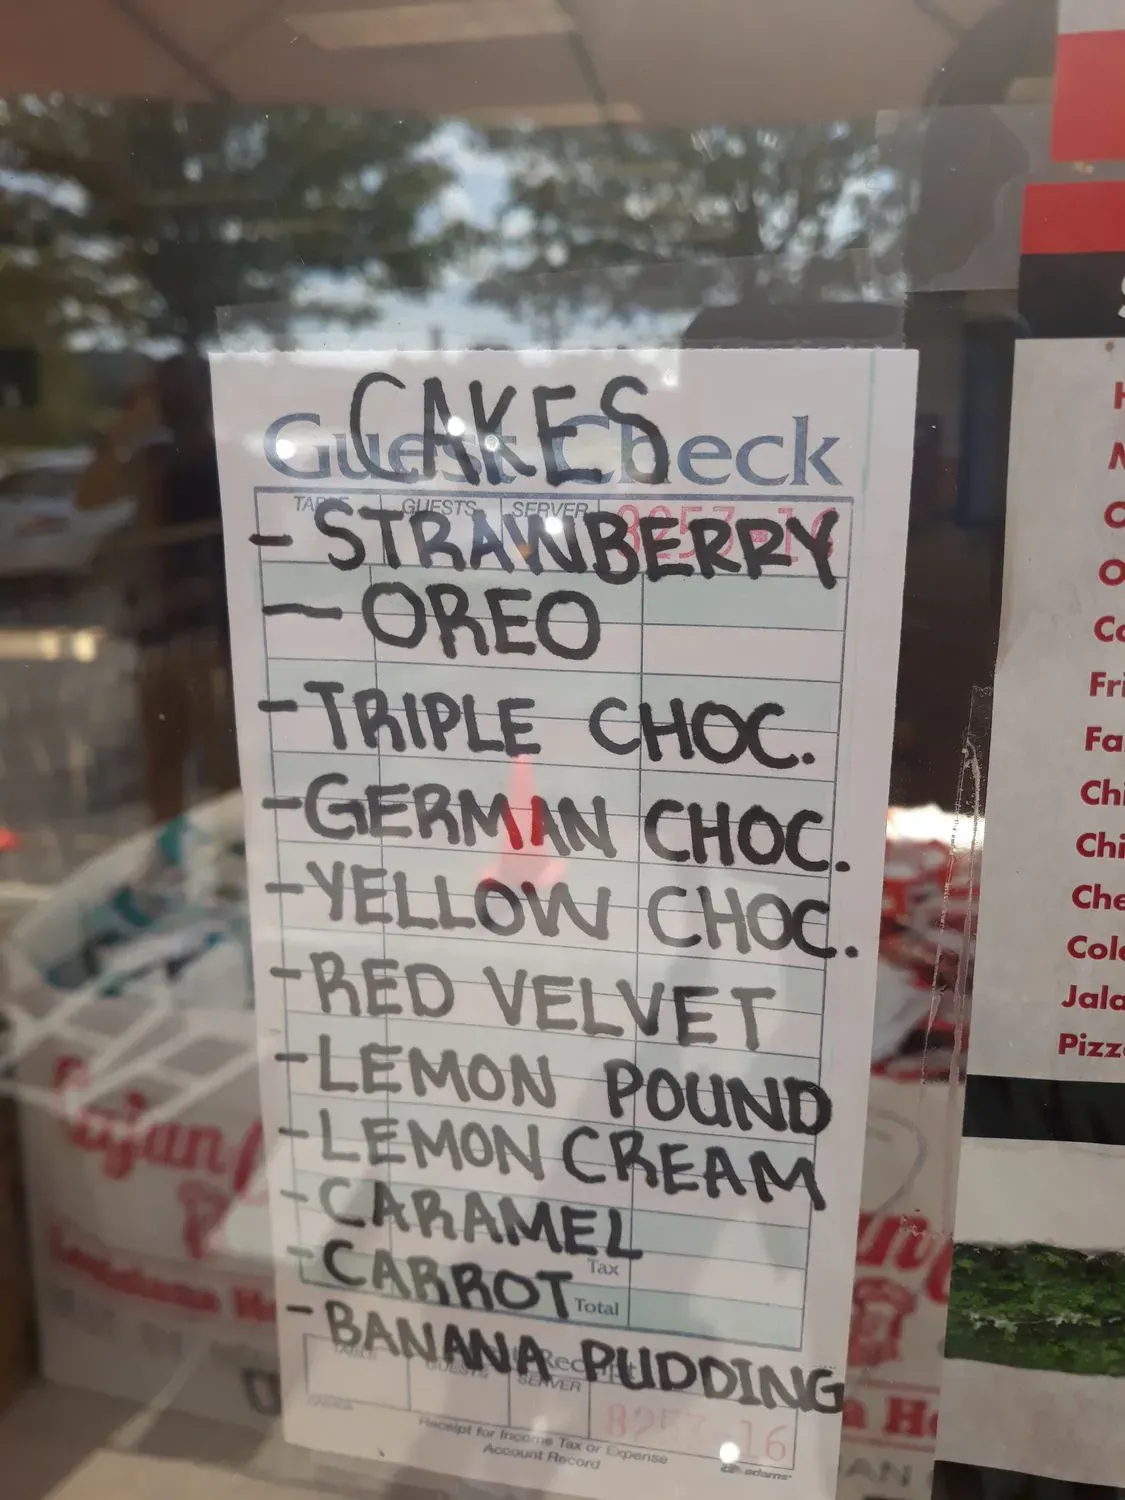 CAKES
Guest Check
TABLE GUESTS SERVER
8257-16
- STRAWBERRY
- OREO
- TRIPLE CHOC.
- GERMAN CHOC.
- YELLOW CHOC.
- RED VELVET
- LEMON POUND
- LEMON CREAM
- CARAMEL
Tax
- CARROT
Total
- BANANA PUDDING
TABLE GUESTS SERVER
8257-16
Receipt for Income Tax or Expense
Account Record
adams
Cajun
Louisiana
Pizz